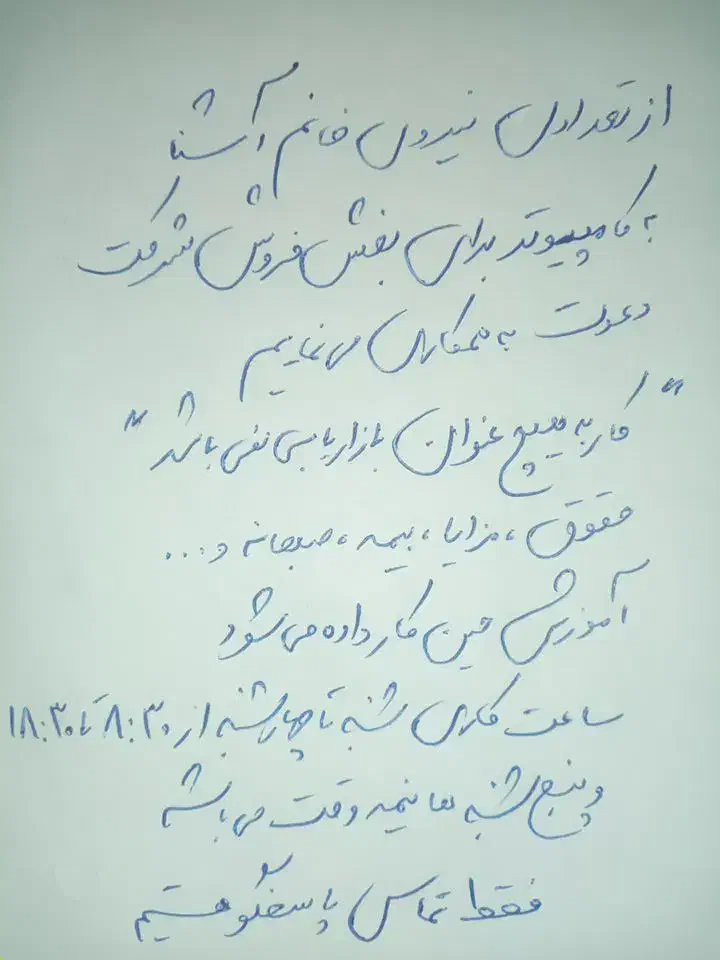 از تعدادی نیروی خانم آشنا
به کامپیوتر برای بخش فروش شرکت
دعوت به همکاری می نماییم
"کار به هیچ عنوان بازاریابی نمی باشد"
حقوق ، مزایا ، بیمه ، صبحانه و ...
آموزش حین کار داده می شود
ساعت کاری شنبه تا چهارشنبه از ۸:۳۰ تا ۱۸:۳۰
و پنج شنبه ها نیمه وقت می باشد
فقط تماس پاسخگو هستیم